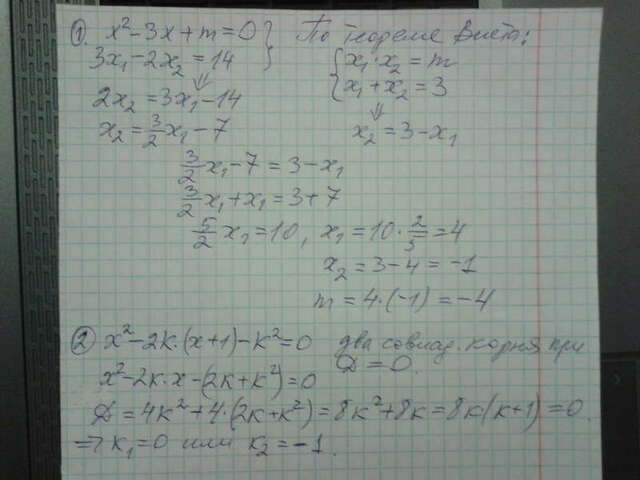 ① x² - 3x + m = 0 } По теореме Виета:
3x₁ - 2x₂ = 14 { x₁·x₂ = m
⇓ x₁ + x₂ = 3
2x₂ = 3x₁ - 14 ⇓
x₂ = 3/2 x₁ - 7 x₂ = 3 - x₁
3/2 x₁ - 7 = 3 - x₁
3/2 x₁ + x₁ = 3 + 7
5/2 x₁ = 10, x₁ = 10 · 2/5 = 4
x₂ = 3 - 4 = -1
m = 4·(-1) = -4
② x² - 2k·(x+1) - k² = 0 два совпад. корня при
D = 0.
x² - 2k·x - (2k + k²) = 0
D = 4k² + 4·(2k + k²) = 8k² + 8k = 8k(k+1) = 0.
⇒ k₁ = 0 или k₂ = -1.